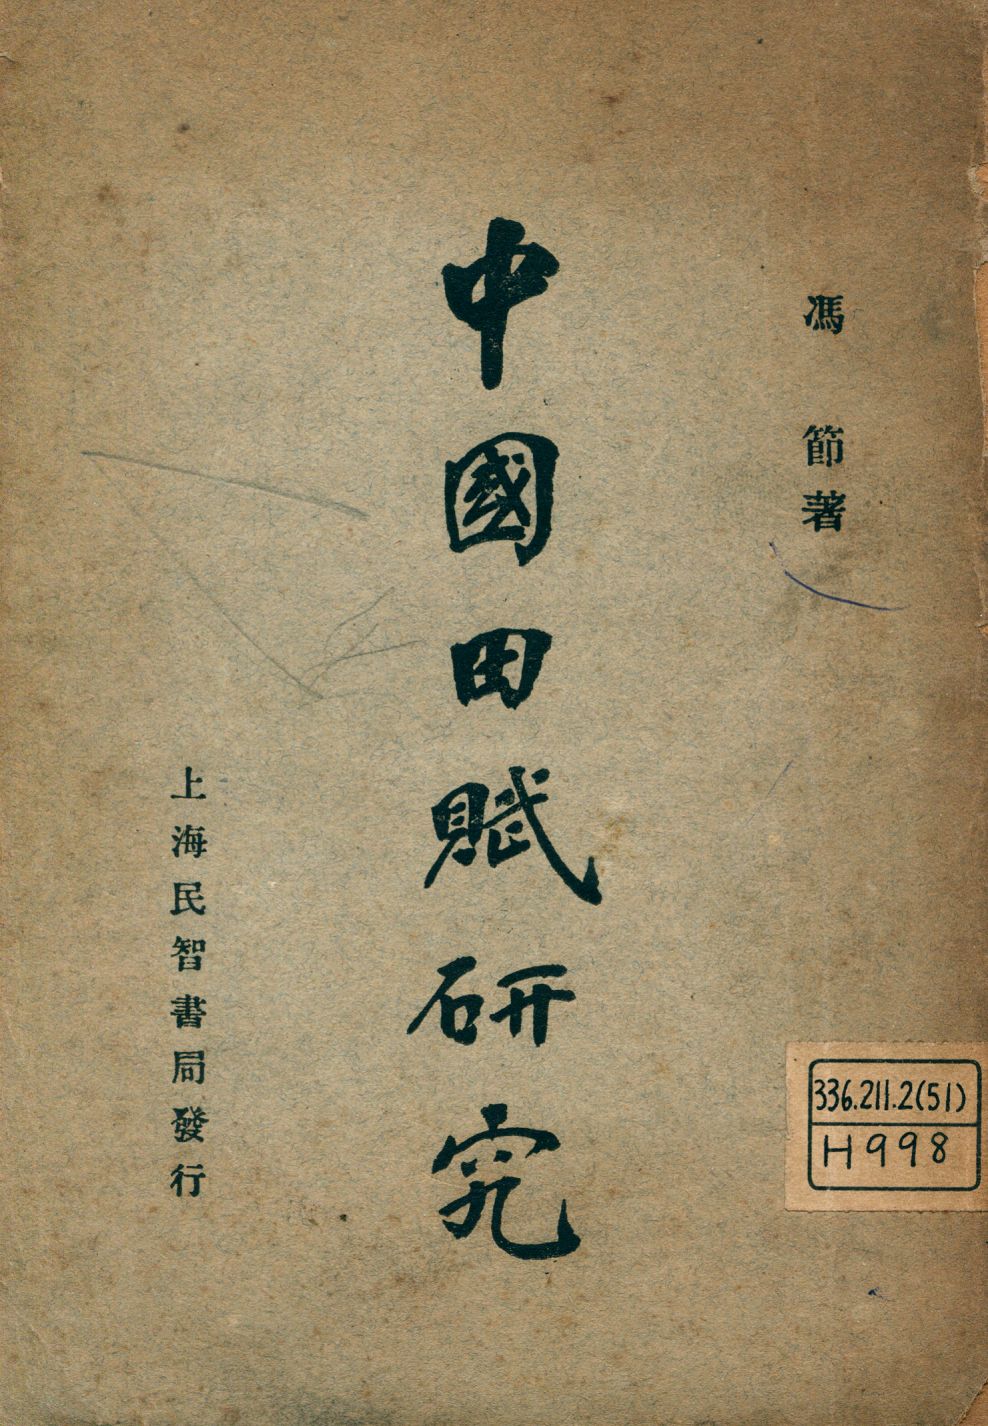 馮節著
中國田賦研究
上海民智書局發行
336.211.2(51)
H998